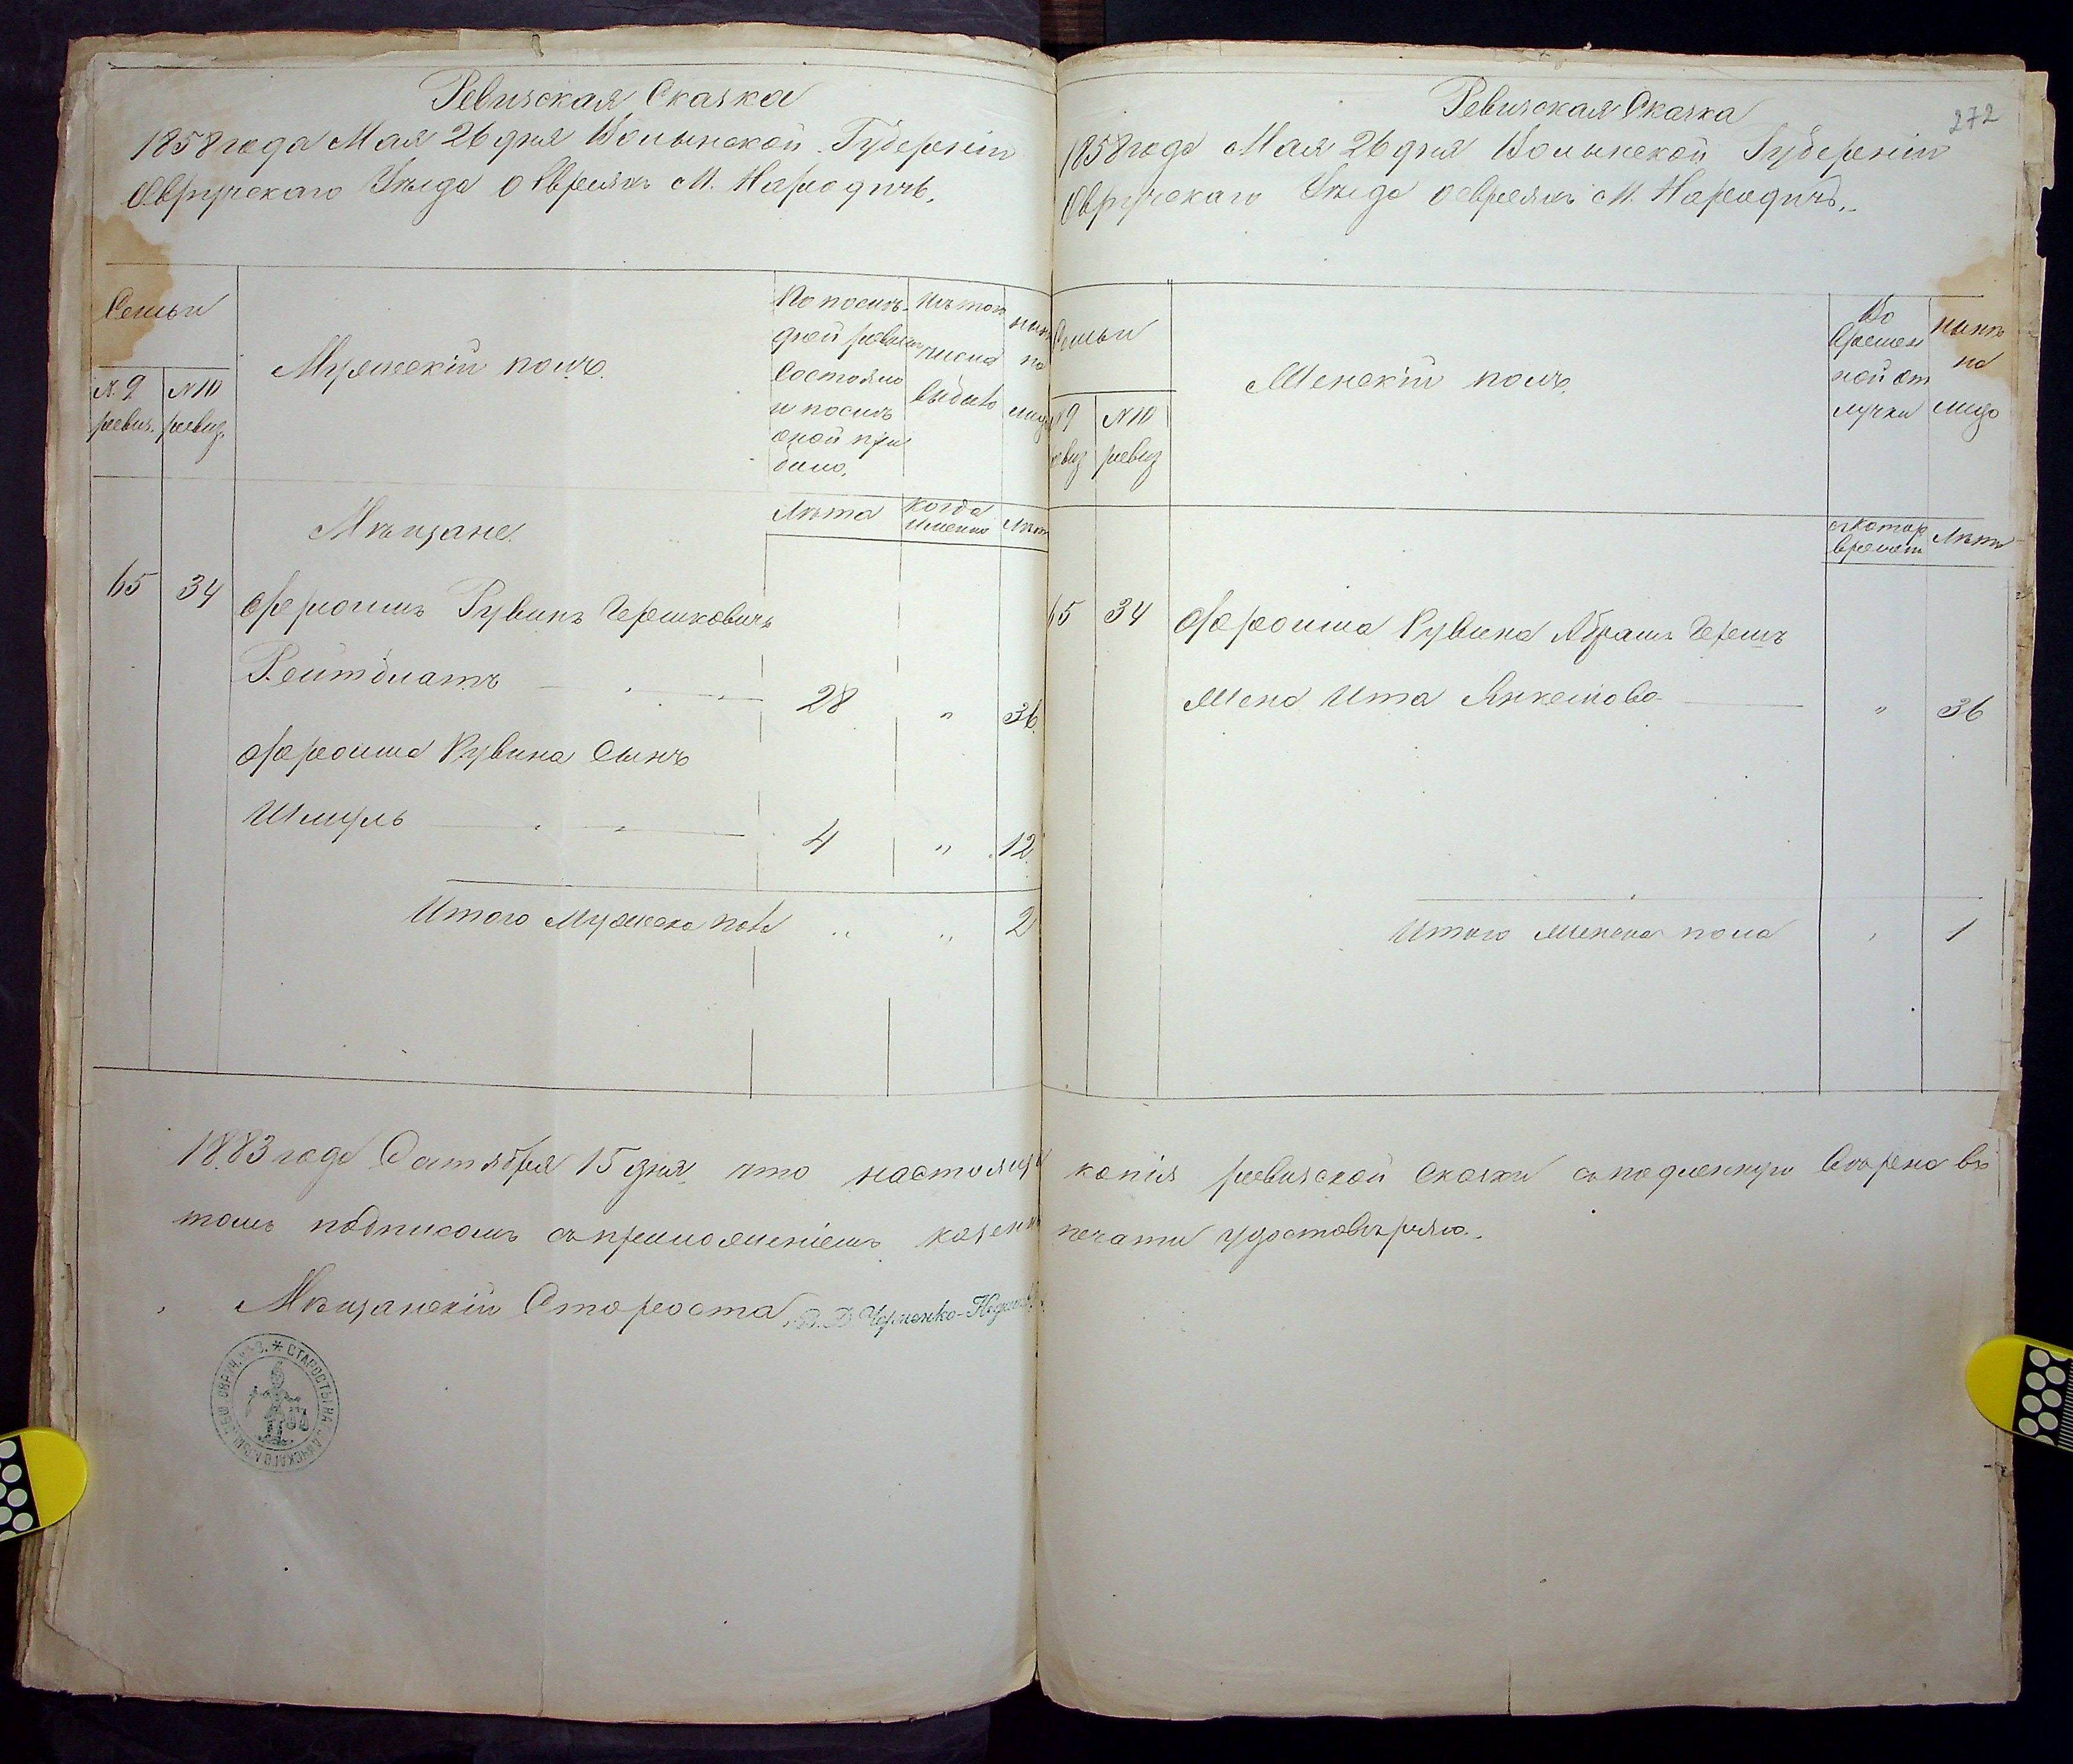 Ревизская Сказка
1858 года Мая 26 дня Волынской Губерніи
Овручскаго Уезда о Евреяхъ М. Народичъ.
Семьи
№ 9 ревиз.
№ 10 ревиз.
Мужескій полъ.
По послѣдней ревизіи состояло и послѣ оной прибыло.
Изъ того числа выбыло
нынѣ на лицо
Лѣта
Когда именно
Лѣта
Мѣщане
65 34 Фроимъ Рувинъ Гершковичъ
Рейтблатъ 28 " 36
Фроима Рувина Сынъ
Шмуль 4 " 12
Итого Мужеска пола " " 2
1883 года Октября 15 дня, что настоящая
томъ подписомъ съ приложеніемъ казенной
Мѣщанскій Староста В. Д. Черненко-
СТАРОСТЫ МѢЩ. ОБЩ. ОВРУЧ. УѢЗ. *
272
Ревизская Сказка
1858 года Мая 26 дня Волынской Губерніи
Овручскаго Уезда о евреяхъ М. Народичъ.
Семьи
№ 9 ревиз
№ 10 ревиз
Женскій полъ.
Во временной отлучки
нынѣ на лицо
съ котор времени
Лѣта
65 34 Фроима Рувина Абрамъ Гершъ
Жена Ита Янкелова " 36
Итого женска пола " 1
копія ревизской сказки съ подленную вѣрена въ
печати удостовѣряю.